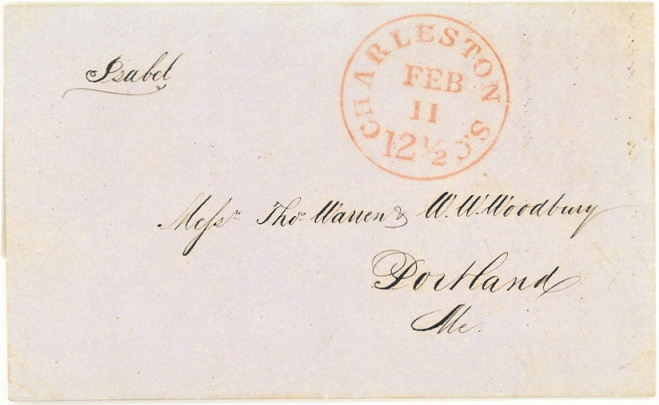 Isabel
CHARLESTON S.C.
FEB
11
12½
Messrs Thos Warren & W. W. Woodbury
Portland
Me.